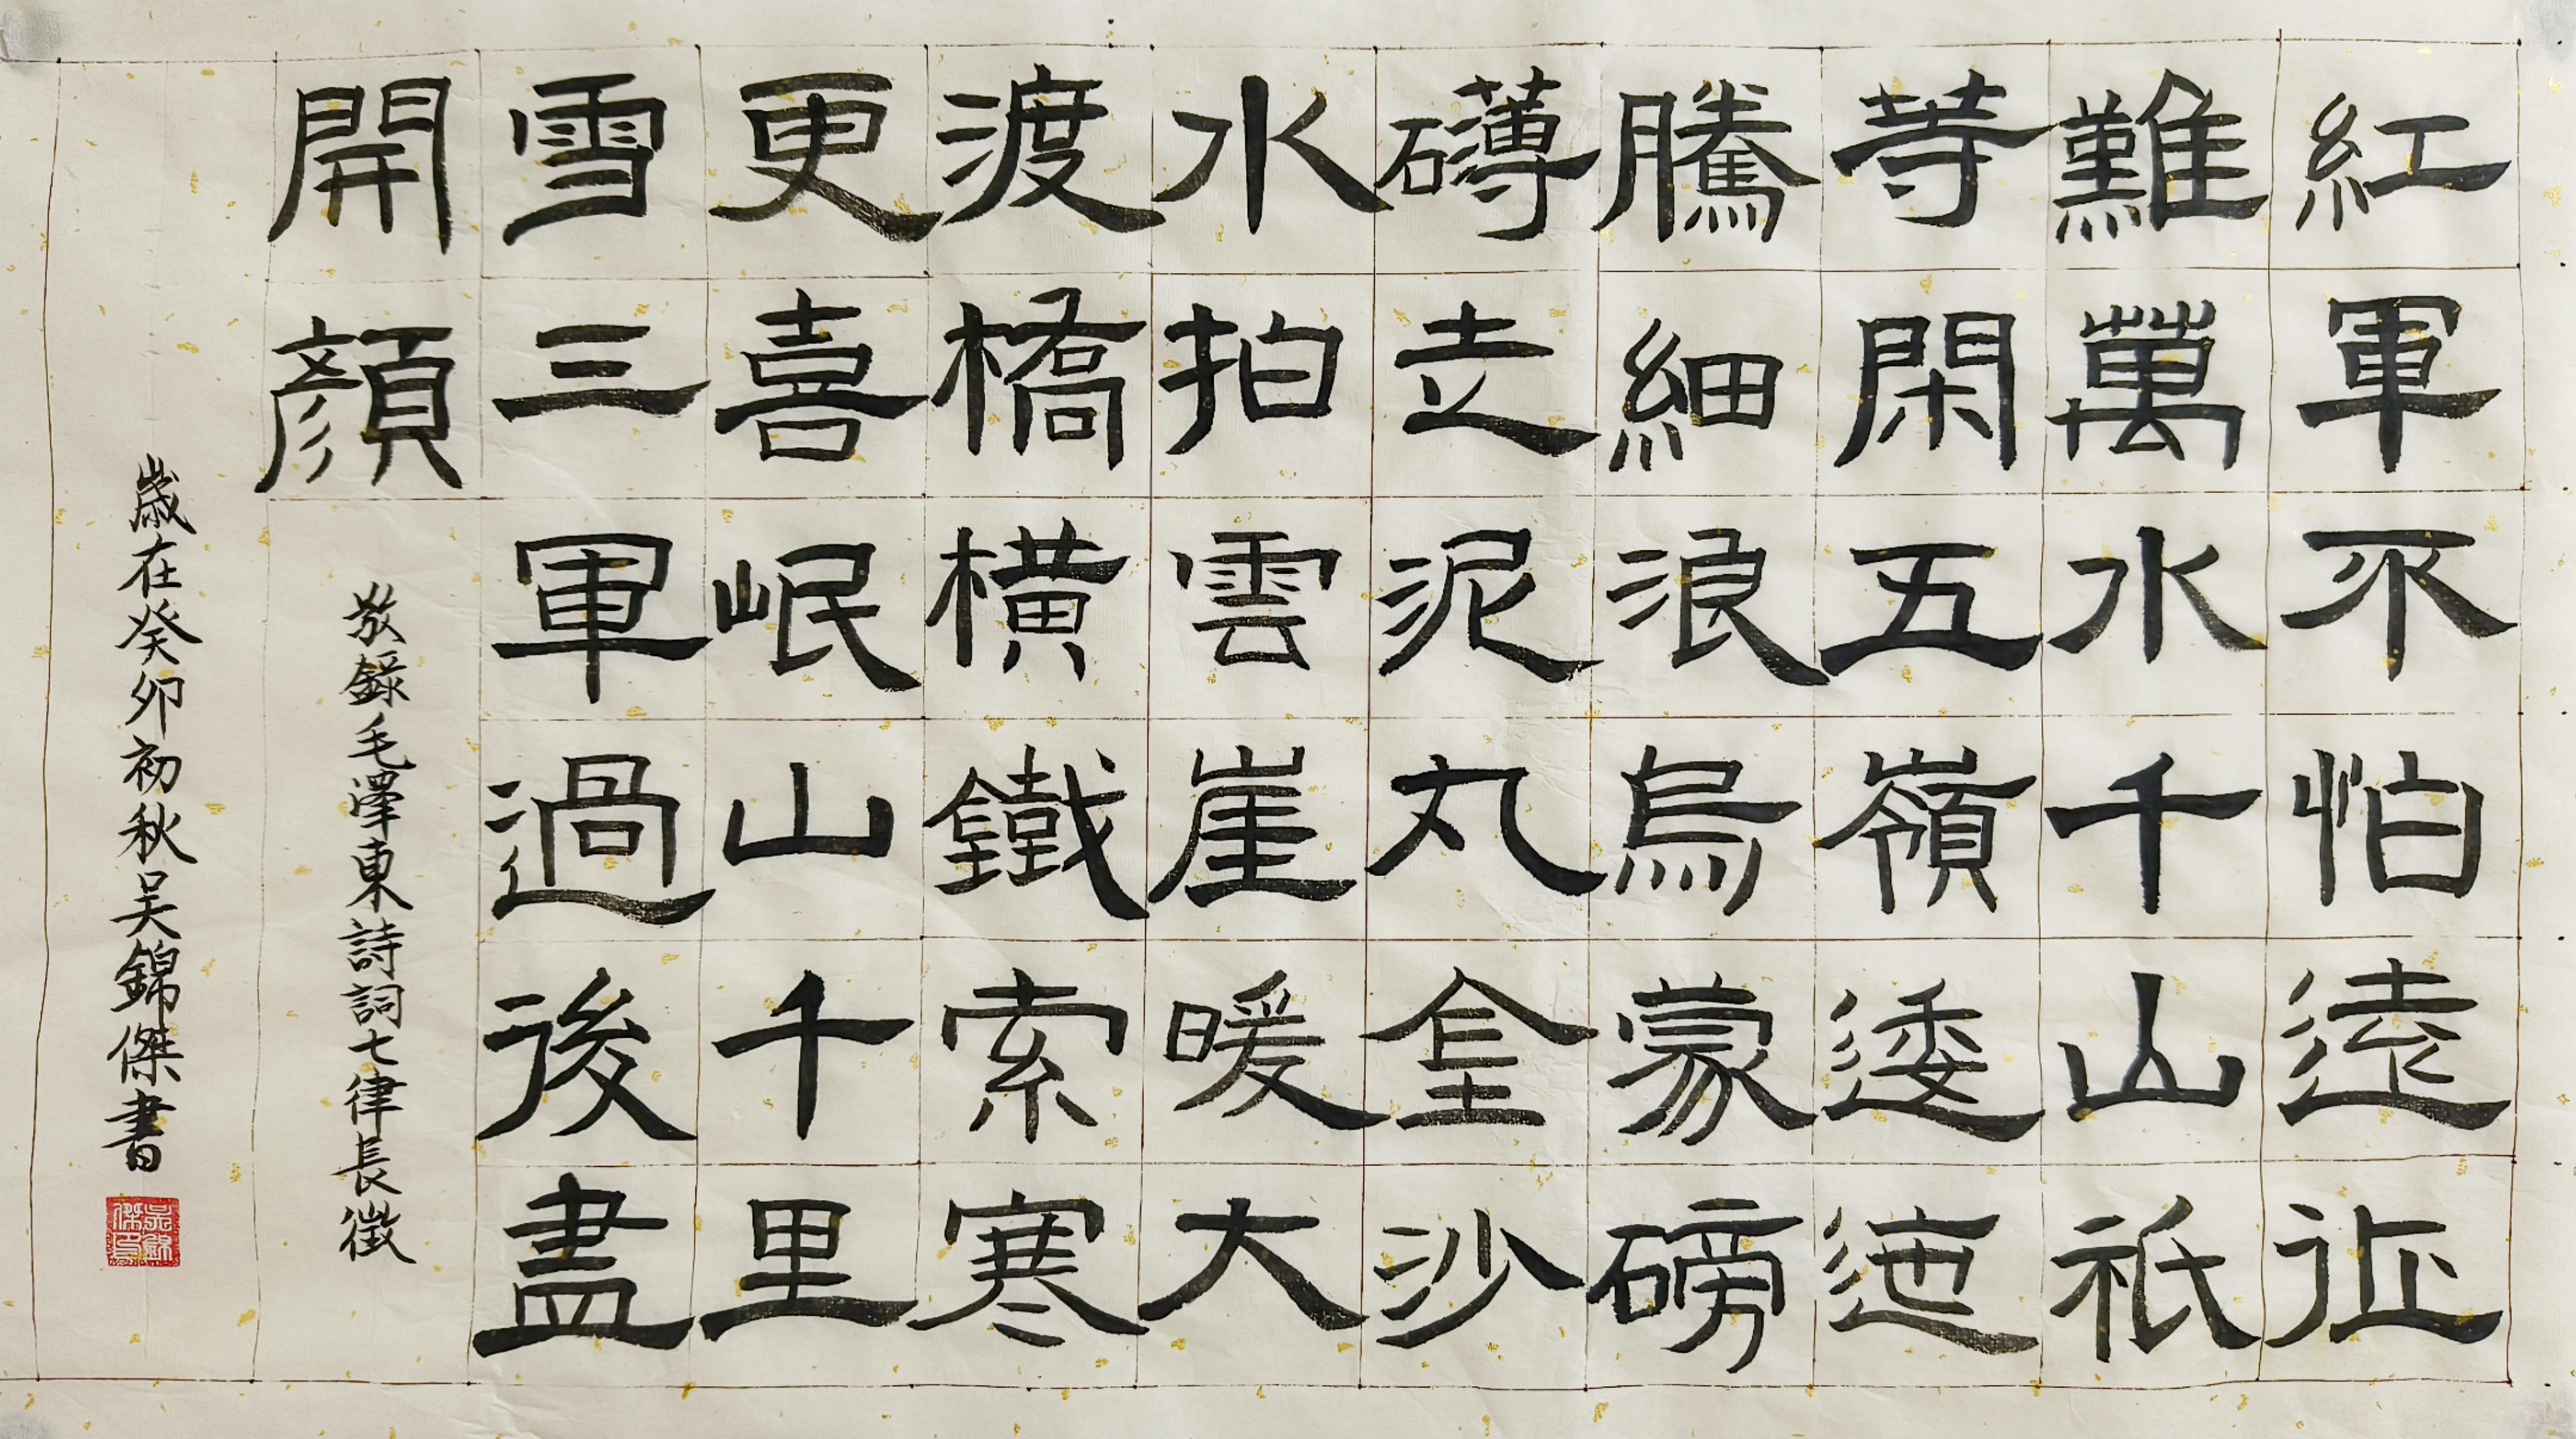 紅軍不怕遠征
難萬水千山祇
等閑五嶺逶迤
騰細浪烏蒙磅
礴走泥丸金沙
水拍雲崖暖大
渡橋橫鐵索寒
更喜岷山千里
雪三軍過後盡
開顏
敬錄毛澤東詩詞七律長徵
歲在癸卯初秋吴錦傑書
吴錦傑印